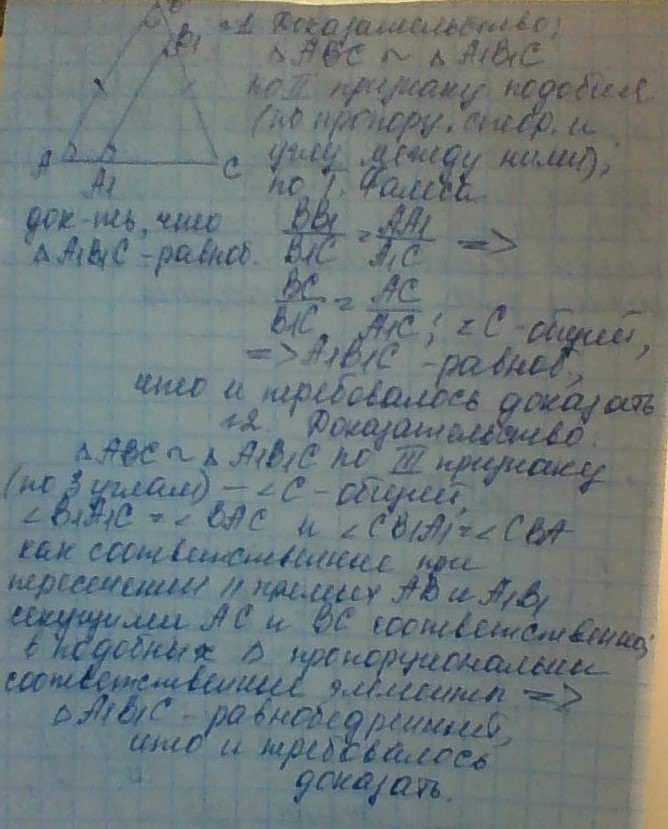 B
B1
A
A1
C
док-ть, что
△ A1B1C - равноб.
1. Доказательство:
△ ABC ~ △ A1B1C
по II признаку подобия
(по пропорц. сторон и
углу между ними),
по т. Фалеса
BB1/B1C = AA1/A1C =>
BC/B1C = AC/A1C; ∠C - общий,
=> A1B1C - равноб,
что и требовалось доказать
2. Доказательство.
△ ABC ~ △ A1B1C по III признаку
(по 3 углам) - ∠C - общий,
∠B1A1C = ∠BAC и ∠CB1A1 = ∠CBA
как соответственные при
пересечении || прямых AB и A1B1
секущими AC и BC соответственно;
в подобных △ пропорциональны
соответственные элементы =>
△ A1B1C - равнобедренный,
что и требовалось
доказать.